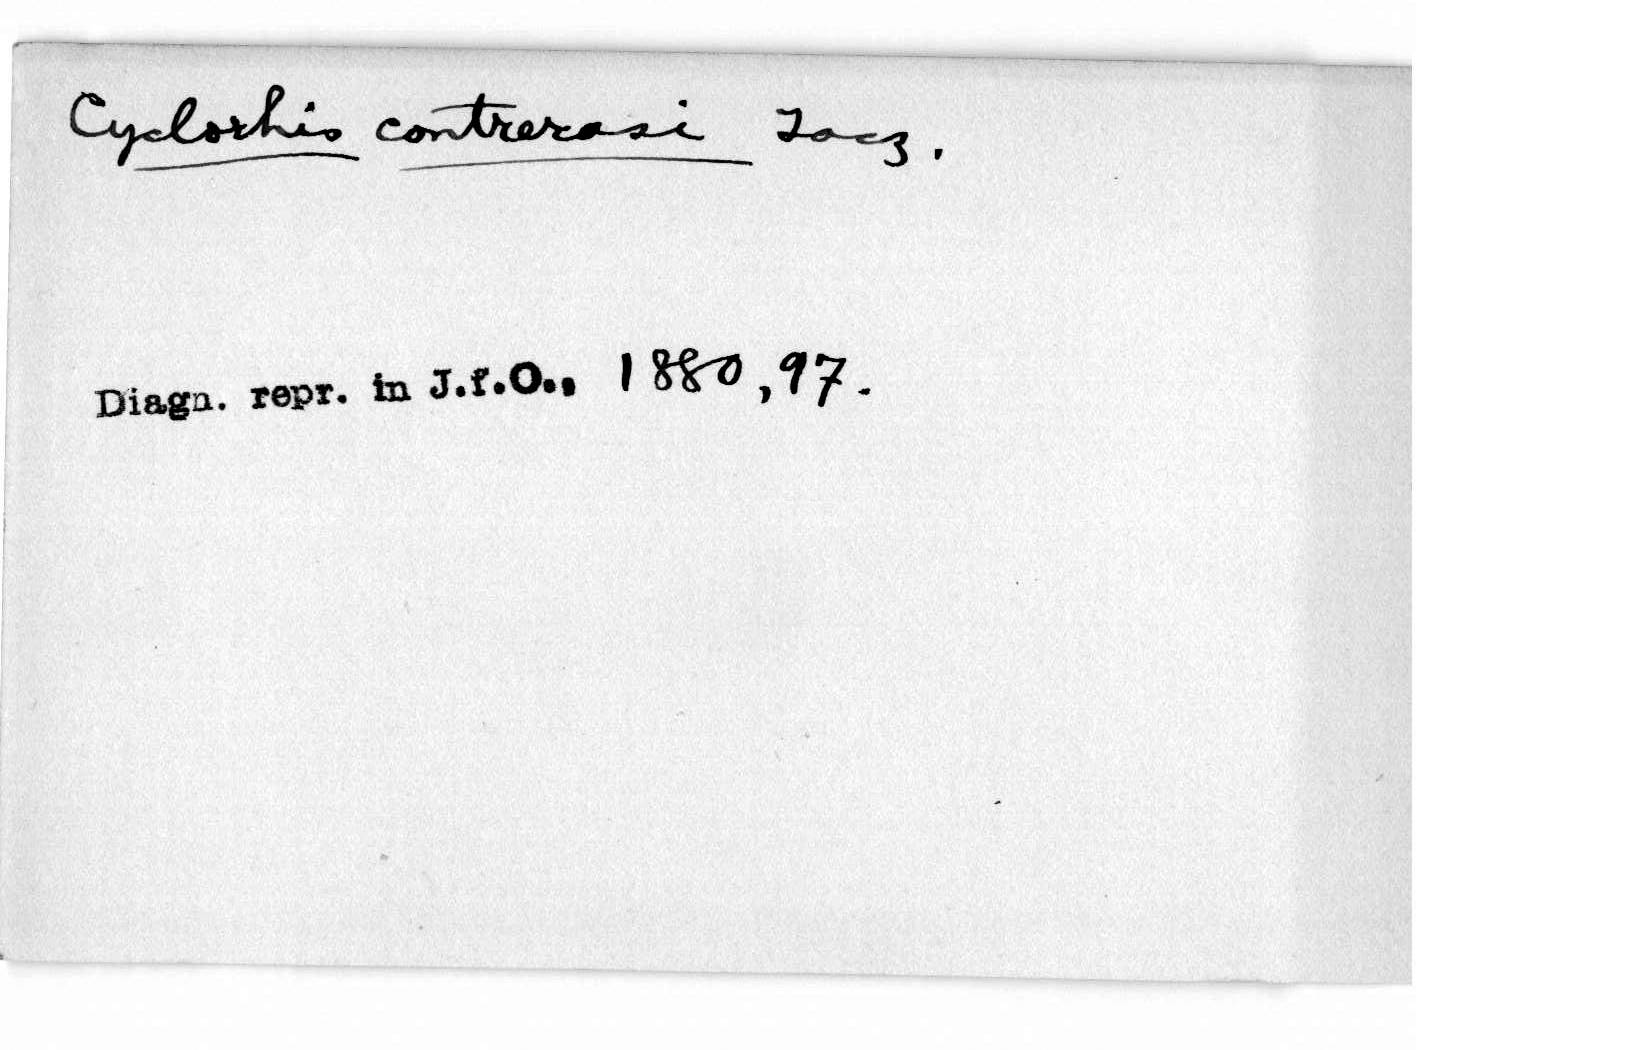 Cyclorhis contrerasi Tacz.
Diagn. repr. in J.f.O., 1880, 97.